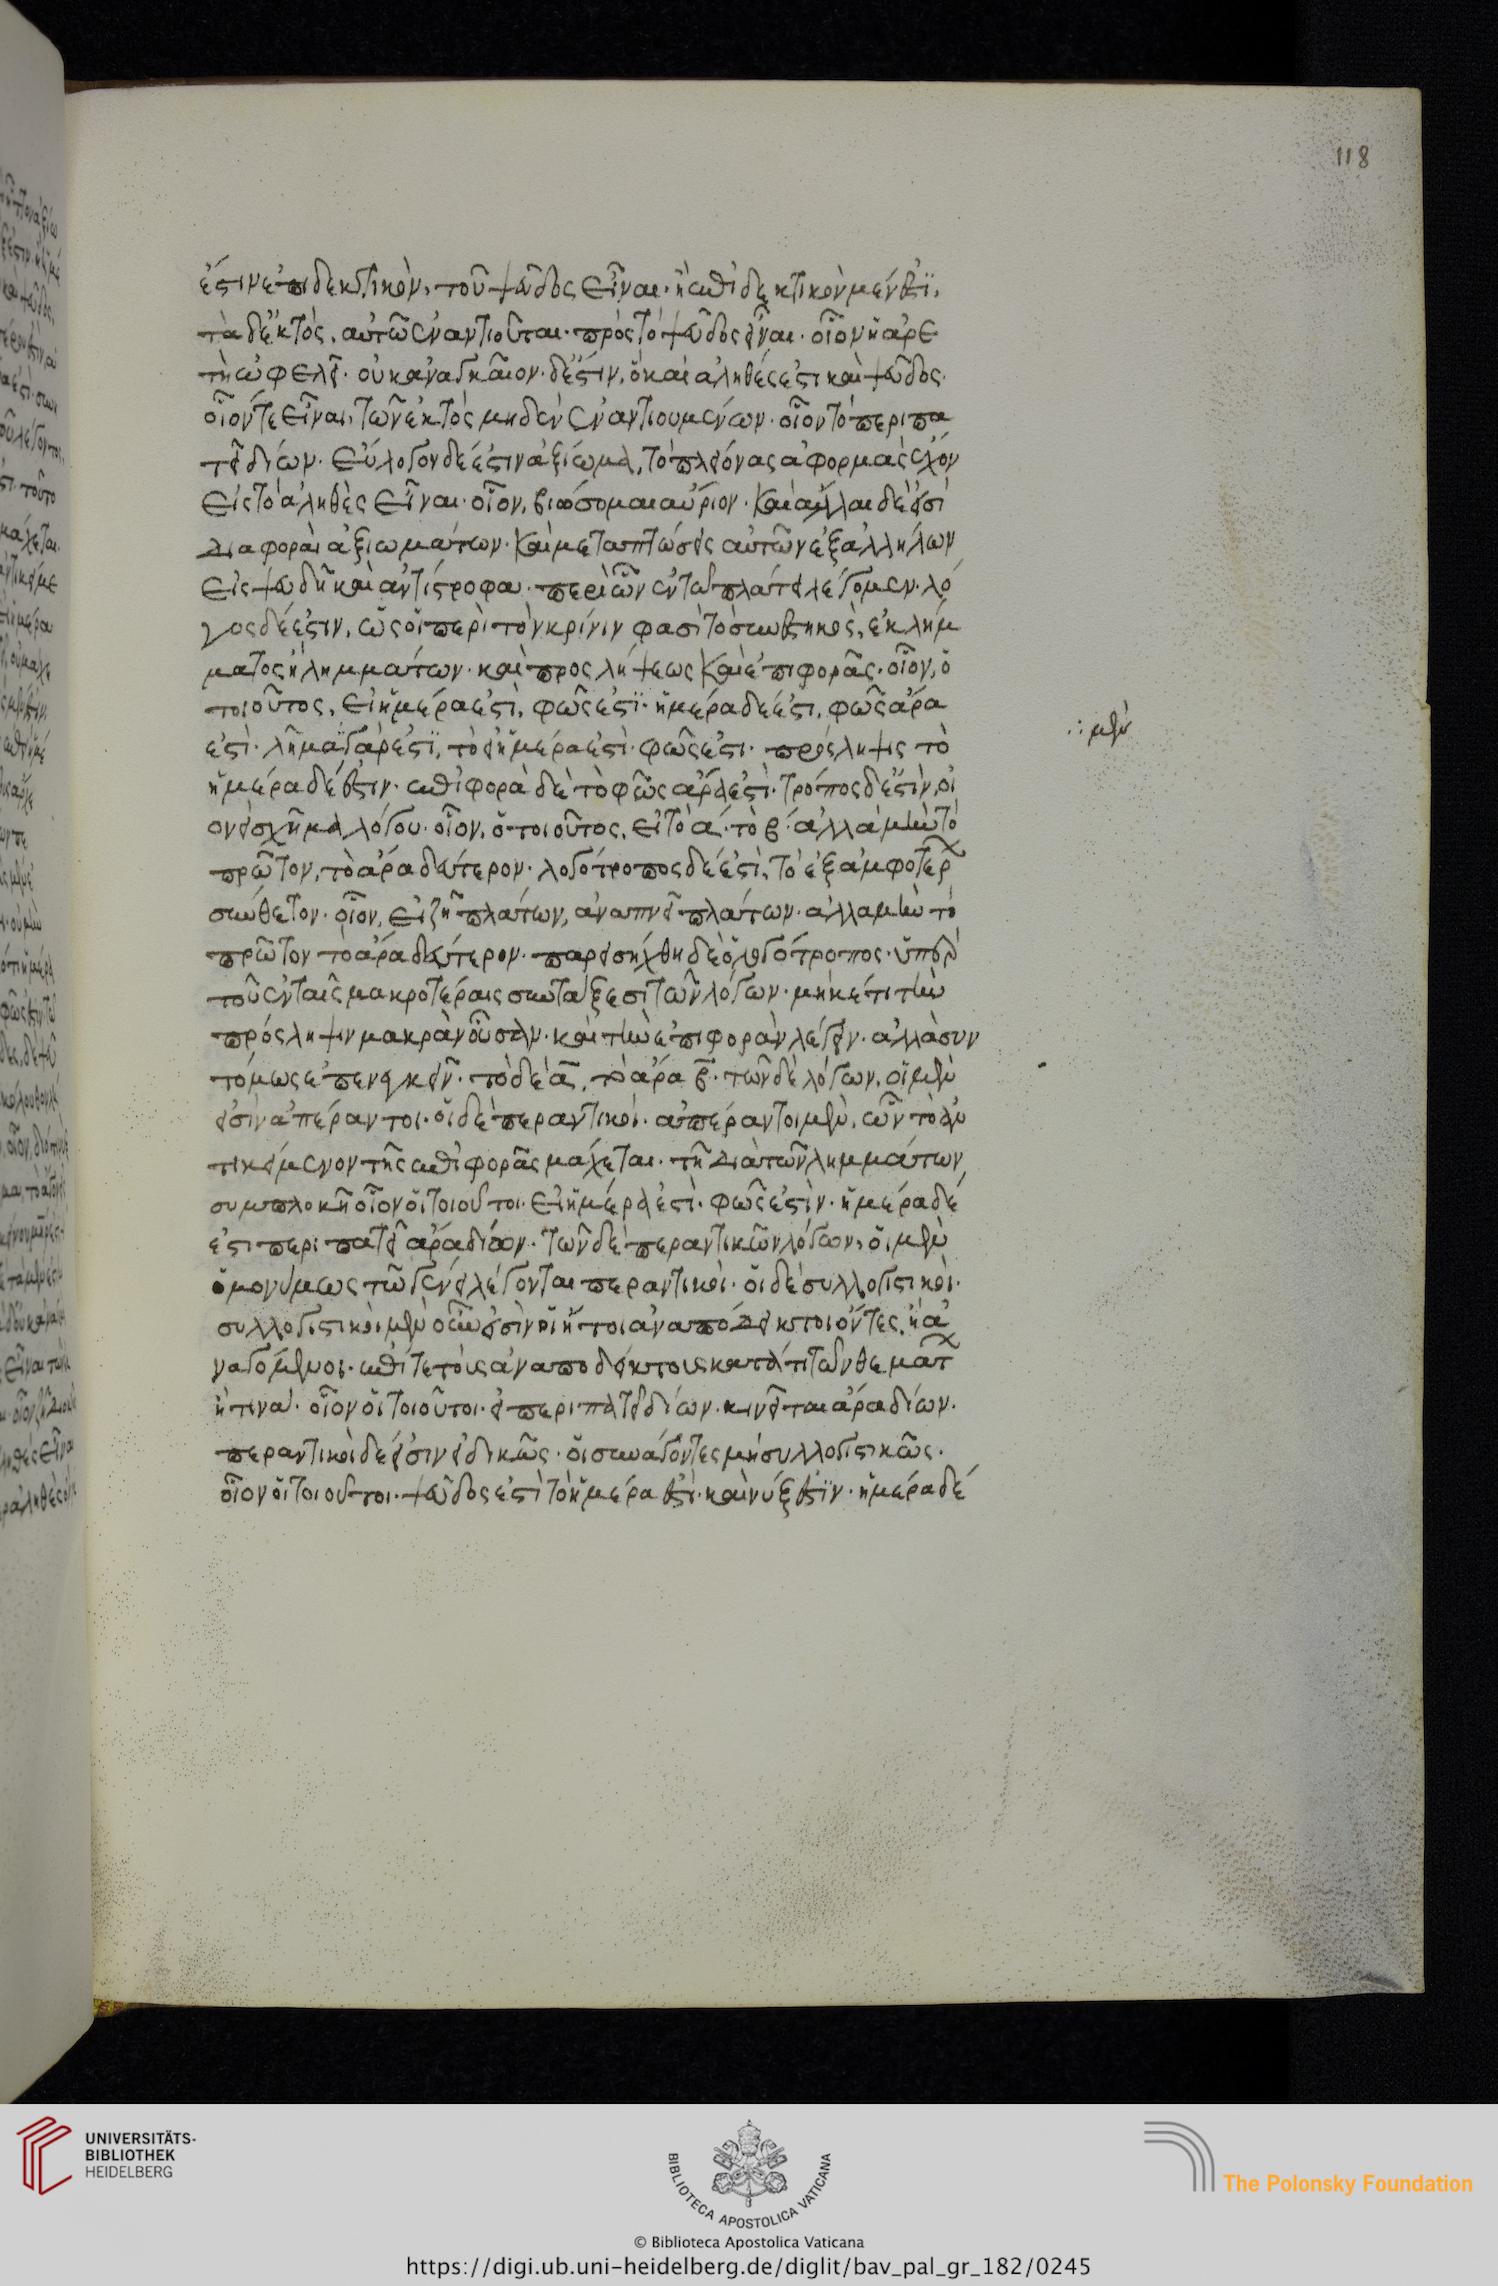 118
ἐστιν ἐπιδεκτικὸν, τοῦ ψεῦδος εἶναι· ἢ ἐπιδεκτικὸν μέν ἐστϊ,
τὰ δ' ἐκτὸς, αὐτῶ ἐναντιοῦται· πρὸς τὸ ψεῦδος εἶναι· οἷον ἡ ἀρε
τὴ ὠφελεῖ· οὐκ ἀναγκαῖον· δέ ἐστιν, ὃ καὶ ἀληθές ἐστι καὶ ψεῦδος·
οἷόν τε εἶναι, τῶν ἐκτὸς μηδὲν ἐναντιουμένων· οἷον τὸ περιπα
τεῖ δίων· εὔλογον δέ ἐστιν ἀξίωμα, τὸ πλείονας ἀφορμὰς ἔχον
εἰς τὸ ἀληθὲς εἶναι· οἷον, βιώσομαι αὔριον· καὶ ἄλλαι δὲ εἰσὶ
διαφοραὶ ἀξιωμάτων· καὶ μεταπτώσεις αὐτῶν ἐξ ἀλλήλων
εἰς ψευδῆ καὶ ἀντίστροφα· περὶ ὧν ἐν τῶ πλάτει λέγομεν· λό
γος δέ ἐστιν, ὡς οἱ περὶ τὸν κρίνιν φασὶ τὸ συνεστηκὸς, ἐκ λήμ
ματος ἢ λημμάτων· καὶ προσλήψεως καὶ ἐπιφορᾶς· οἷον, ὁ
τοιοῦτος, εἰ ἡμέρα ἐστὶ, φῶς ἐστϊ· ἡμέρα δέ ἐστι, φῶς ἄρα
ἐστὶ· λῆμα γάρ ἐστϊ, τὸ εἰ ἡμέρα ἐστὶ· φῶς ἐστι· πρόσληψις τὸ
∴ μὲν
ἡμέρα δέ ἐστιν· ἐπιφορὰ δὲ τὸ φῶς ἄρα ἐστὶ· τρόπος δέ ἐστὶν, οἱ
ονεὶ σχῆμα λόγου· οἷον, ὁ τοιοῦτος, εἰ τὸ α· τὸ β· ἀλλὰ μὴν τὸ
πρῶτον, τὸ ἄρα δεύτερον· λογότροπος δέ ἐστὶ, τὸ ἐξ ἀμφοτερ
σύνθετον· οἷον, εἰ ζῆ πλάτων, ἀναπνεῖ πλάτων· ἀλλὰ μὴν τὸ
πρῶτον τὸ ἄρα δεύτερον· παρεισήχθη δὲ ὁ λογότροπος· ὑπὲρ
τοῦ ἐν ταῖς μακροτέραις συντάξεσι τῶν λόγων· μηκέτι τὴν
πρόσληψιν μακρὰν οὖσαν· καὶ τὴν ἐπιφορὰν λέγειν· ἀλλὰ συν
τόμως ἐπενεγκεῖν· τὸ δὲ α, τὸ ἄρα β· τῶν δὲ λόγων, οἱ μὲν
εἰσὶν ἀπέραντοι· οἱ δὲ περαντικοὶ· ἀπέραντοι μὲν, ὧν τὸ ἀν
τικείμενον τῆς ἐπιφορᾶς μάχεται· τῆ διὰ τῶν λημμάτων
συμπλοκῆ οἷον οἱ τοιοῦτοι· εἰ ἡμέρα ἐστὶ· φῶς ἐστὶν· ἡμέρα δέ
ἐστι περιπατεῖ ἄρα δίων· τῶν δὲ περαντικῶν λόγων, οἱ μὲν
ὁμονύμως τῶ γένει λέγονται περαντικοὶ· οἱ δὲ συλλογιστικοὶ·
συλλογιστικοὶ μὲν οὖν εἰσὶν οἱ ἤτοι ἀναπόδεικτοι ὄντες, ἢ ἀ
ναγόμενοι· ἐπί τε τοὺς ἀναποδείκτους κατά τι τῶν θεματ
ἤ τινα· οἷον οἱ τοιοῦτοι· εἰ περιπατεῖ δίων· κινεῖται ἄρα δίων·
περαντικοὶ δέ εἰσιν εἰδικῶς· οἱ συνάγοντες μὴ συλλογιστικῶς·
οἷον οἱ τοιοῦτοι· ψεῦδος ἐστὶ τὸ ἡμέρα ἐστὶ· καὶ νύξ ἐστϊν· ἡμέρα δέ
UNIVERSITÄTS-
BIBLIOTHEK
HEIDELBERG
BIBLIOTECA APOSTOLICA VATICANA
© Biblioteca Apostolica Vaticana
The Polonsky Foundation
https://digi.ub.uni-heidelberg.de/diglit/bav_pal_gr_182/0245